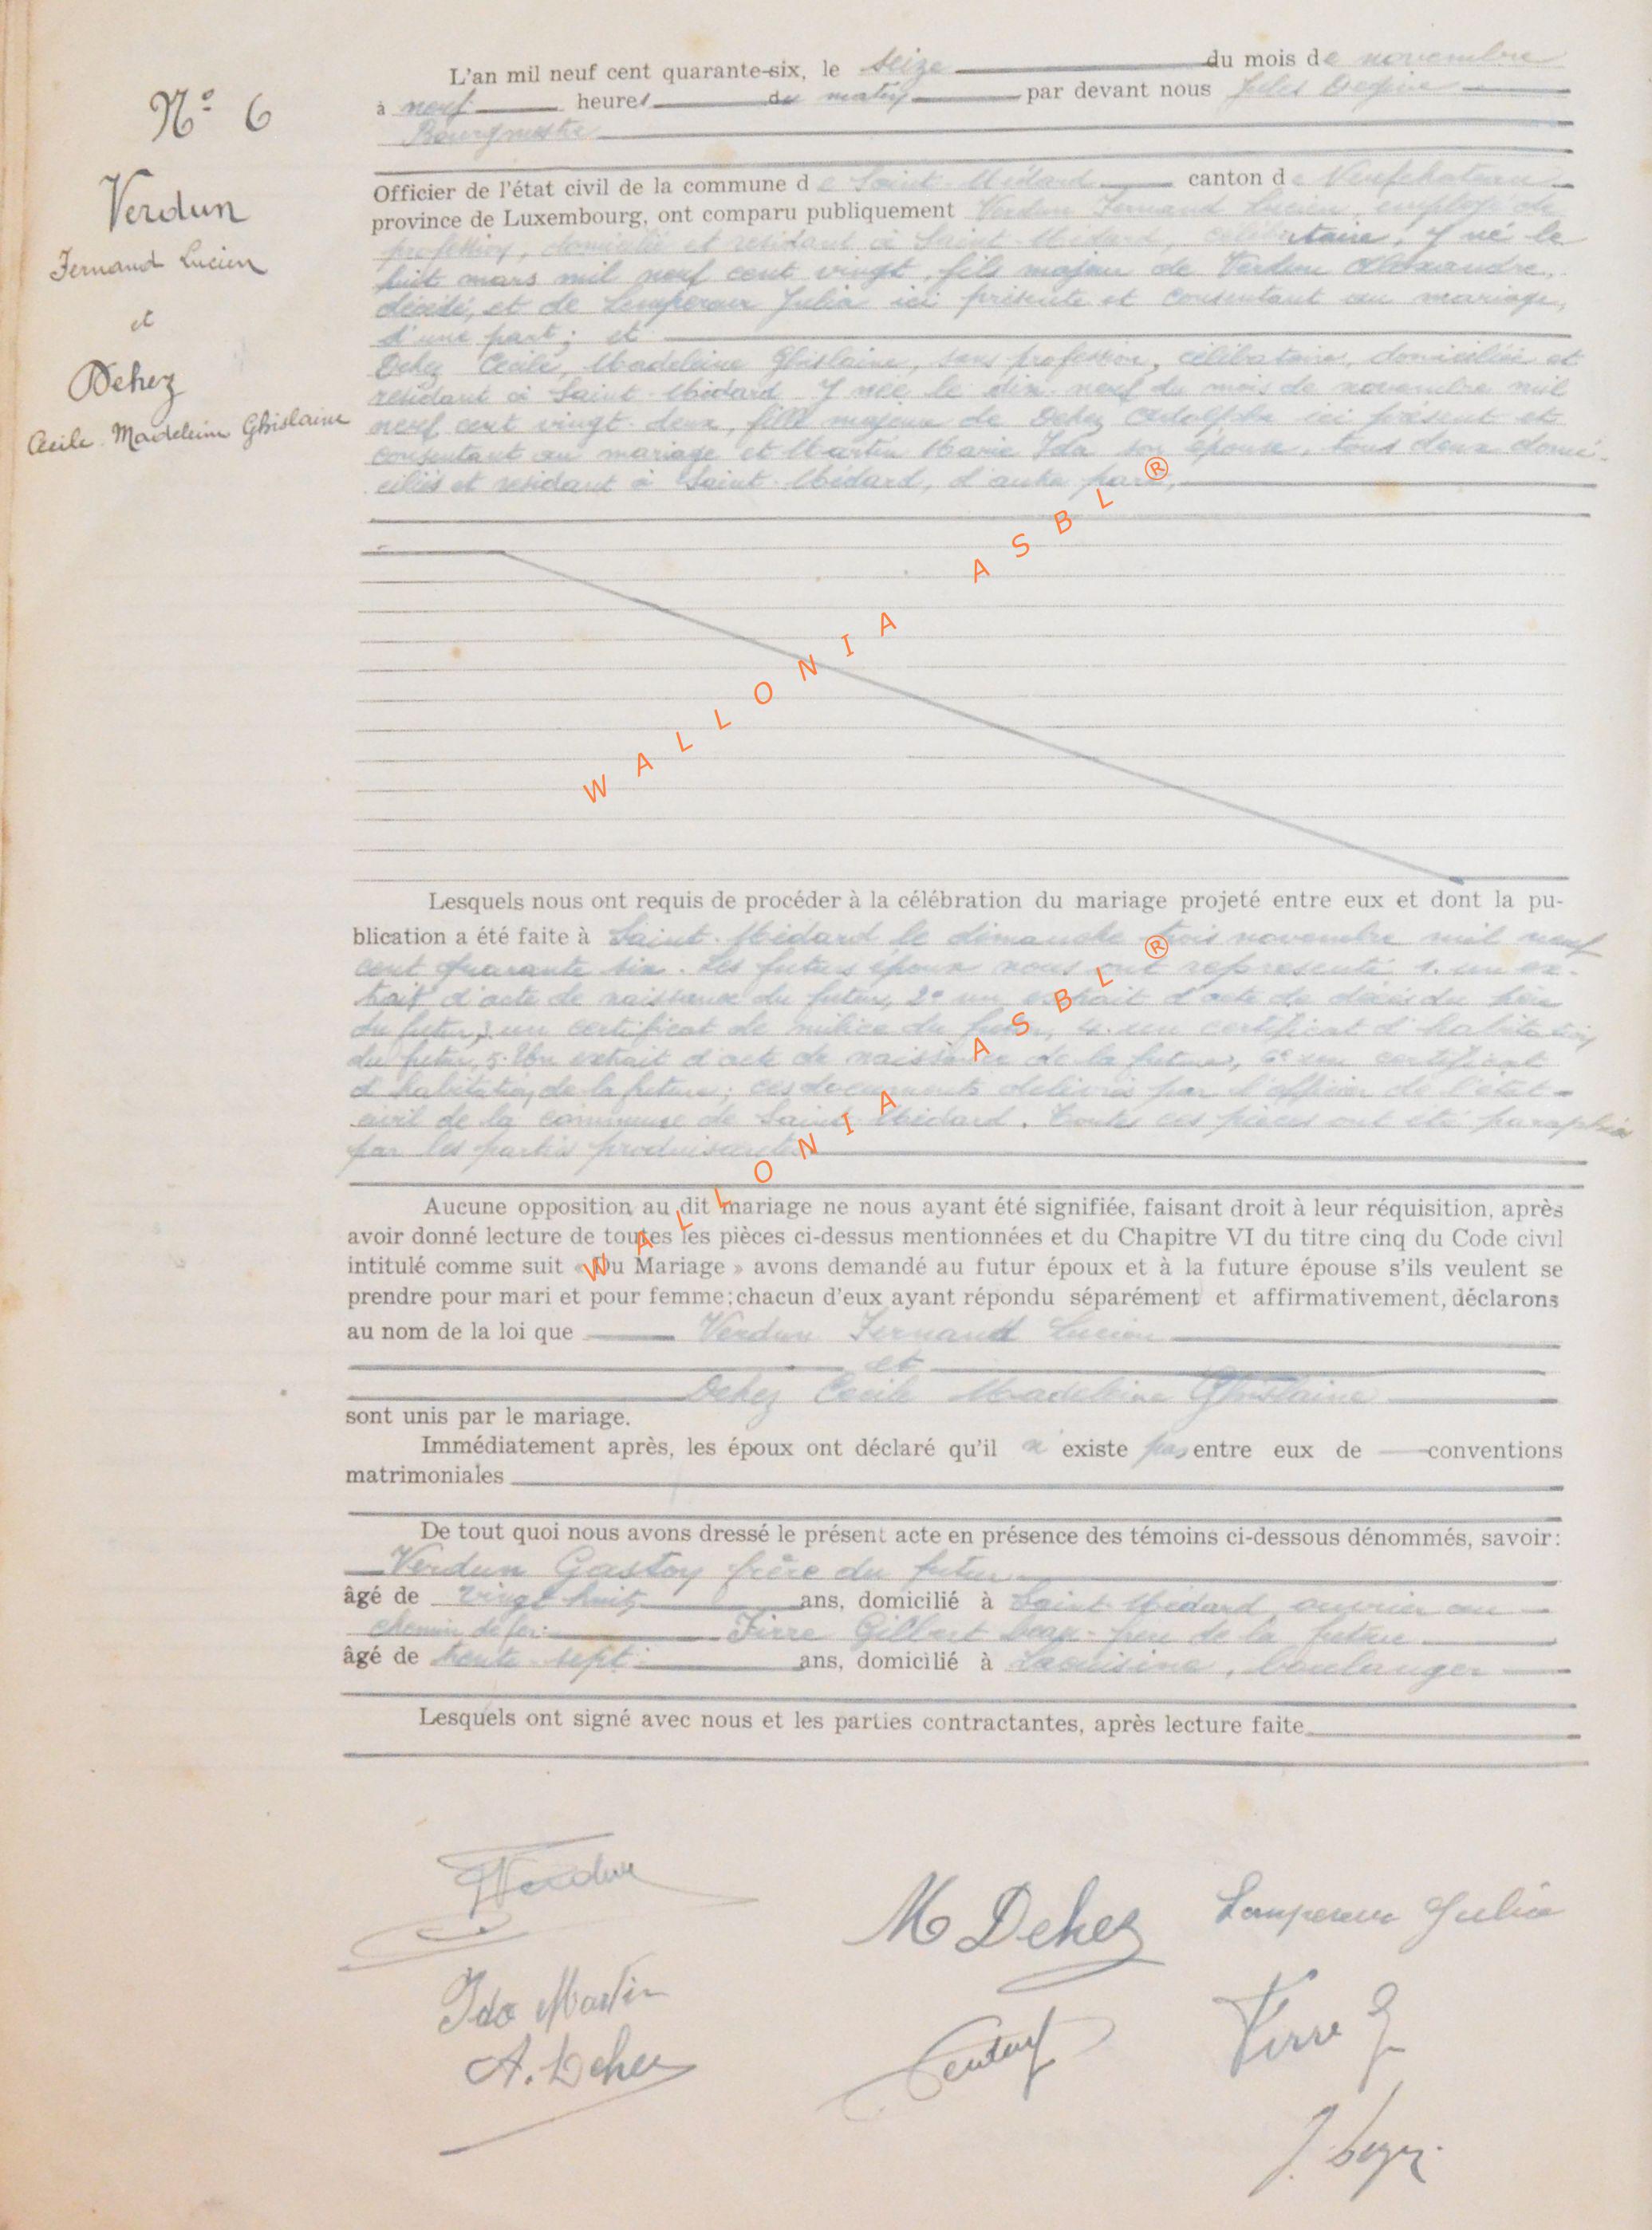 N° 6
Verdun
Fernand Lucien
et
Dehez
Cécile Madeleine Ghislaine
L'an mil neuf cent quarante-six, le seize du mois de novembre
à neuf heures du matin par devant nous Jules
Bourgmestre
Officier de l'état civil de la commune de Saint-Médard canton de Neufchateau
province de Luxembourg, ont comparu publiquement Verdun Fernand Lucien, employé de
profession, domicilié et résidant à Saint-Médard, célibataire, y né le
huit mars mil neuf cent vingt, fils majeur de Verdun Alexandre,
décédé, et de Lempereur Julia ici présente et consentant au mariage,
d'une part; et
Dehez Cécile, Madeleine Ghislaine, sans profession, célibataire, domiciliée et
résidant à Saint-Médard y née le dix-neuf du mois de novembre mil
neuf cent vingt-deux, fille majeure de Dehez Adolphe ici présent et
consentant au mariage et Martin Marie Ida son épouse, tous deux domi-
ciliés et résidant à Saint-Médard, d'autre part,
Lesquels nous ont requis de procéder à la célébration du mariage projeté entre eux et dont la pu-
blication a été faite à Saint-Médard le dimanche trois novembre mil neuf
cent quarante six. Les futurs époux nous ont représenté 1. un ex-
trait d'acte de naissance du futur, 2° un extrait d'acte de décès du père
du futur, 3. un certificat de milice du futur, 4. un certificat d'habitation
du futur, 5. Un extrait d'acte de naissance de la future, 6° un certificat
d'habitation de la future; ces documents délivrés par l'officier de l'état-
civil de la commune de Saint-Médard. Toutes ces pièces ont été paraphées
par les parties produisantes
Aucune opposition au dit mariage ne nous ayant été signifiée, faisant droit à leur réquisition, après
avoir donné lecture de toutes les pièces ci-dessus mentionnées et du Chapitre VI du titre cinq du Code civil
intitulé comme suit « Du Mariage » avons demandé au futur époux et à la future épouse s'ils veulent se
prendre pour mari et pour femme; chacun d'eux ayant répondu séparément et affirmativement, déclarons
au nom de la loi que Verdun Fernand Lucien
et
Dehez Cécile Madeleine Ghislaine
sont unis par le mariage.
Immédiatement après, les époux ont déclaré qu'il n'existe pas entre eux de conventions
matrimoniales
De tout quoi nous avons dressé le présent acte en présence des témoins ci-dessous dénommés, savoir:
Verdun Gaston frère du futur
âgé de vingt huit ans, domicilié à Saint-Médard ouvrier au
chemin de fer. Gilbert beau-père de la future
âgé de trente-sept ans, domicilié à boulanger
Lesquels ont signé avec nous et les parties contractantes, après lecture faite
Verdun
M Dehez
Lempereur Julia
Ida Martin
A. Dehez
WALLONIA ASBL ®
WALLONIA ASBL ®